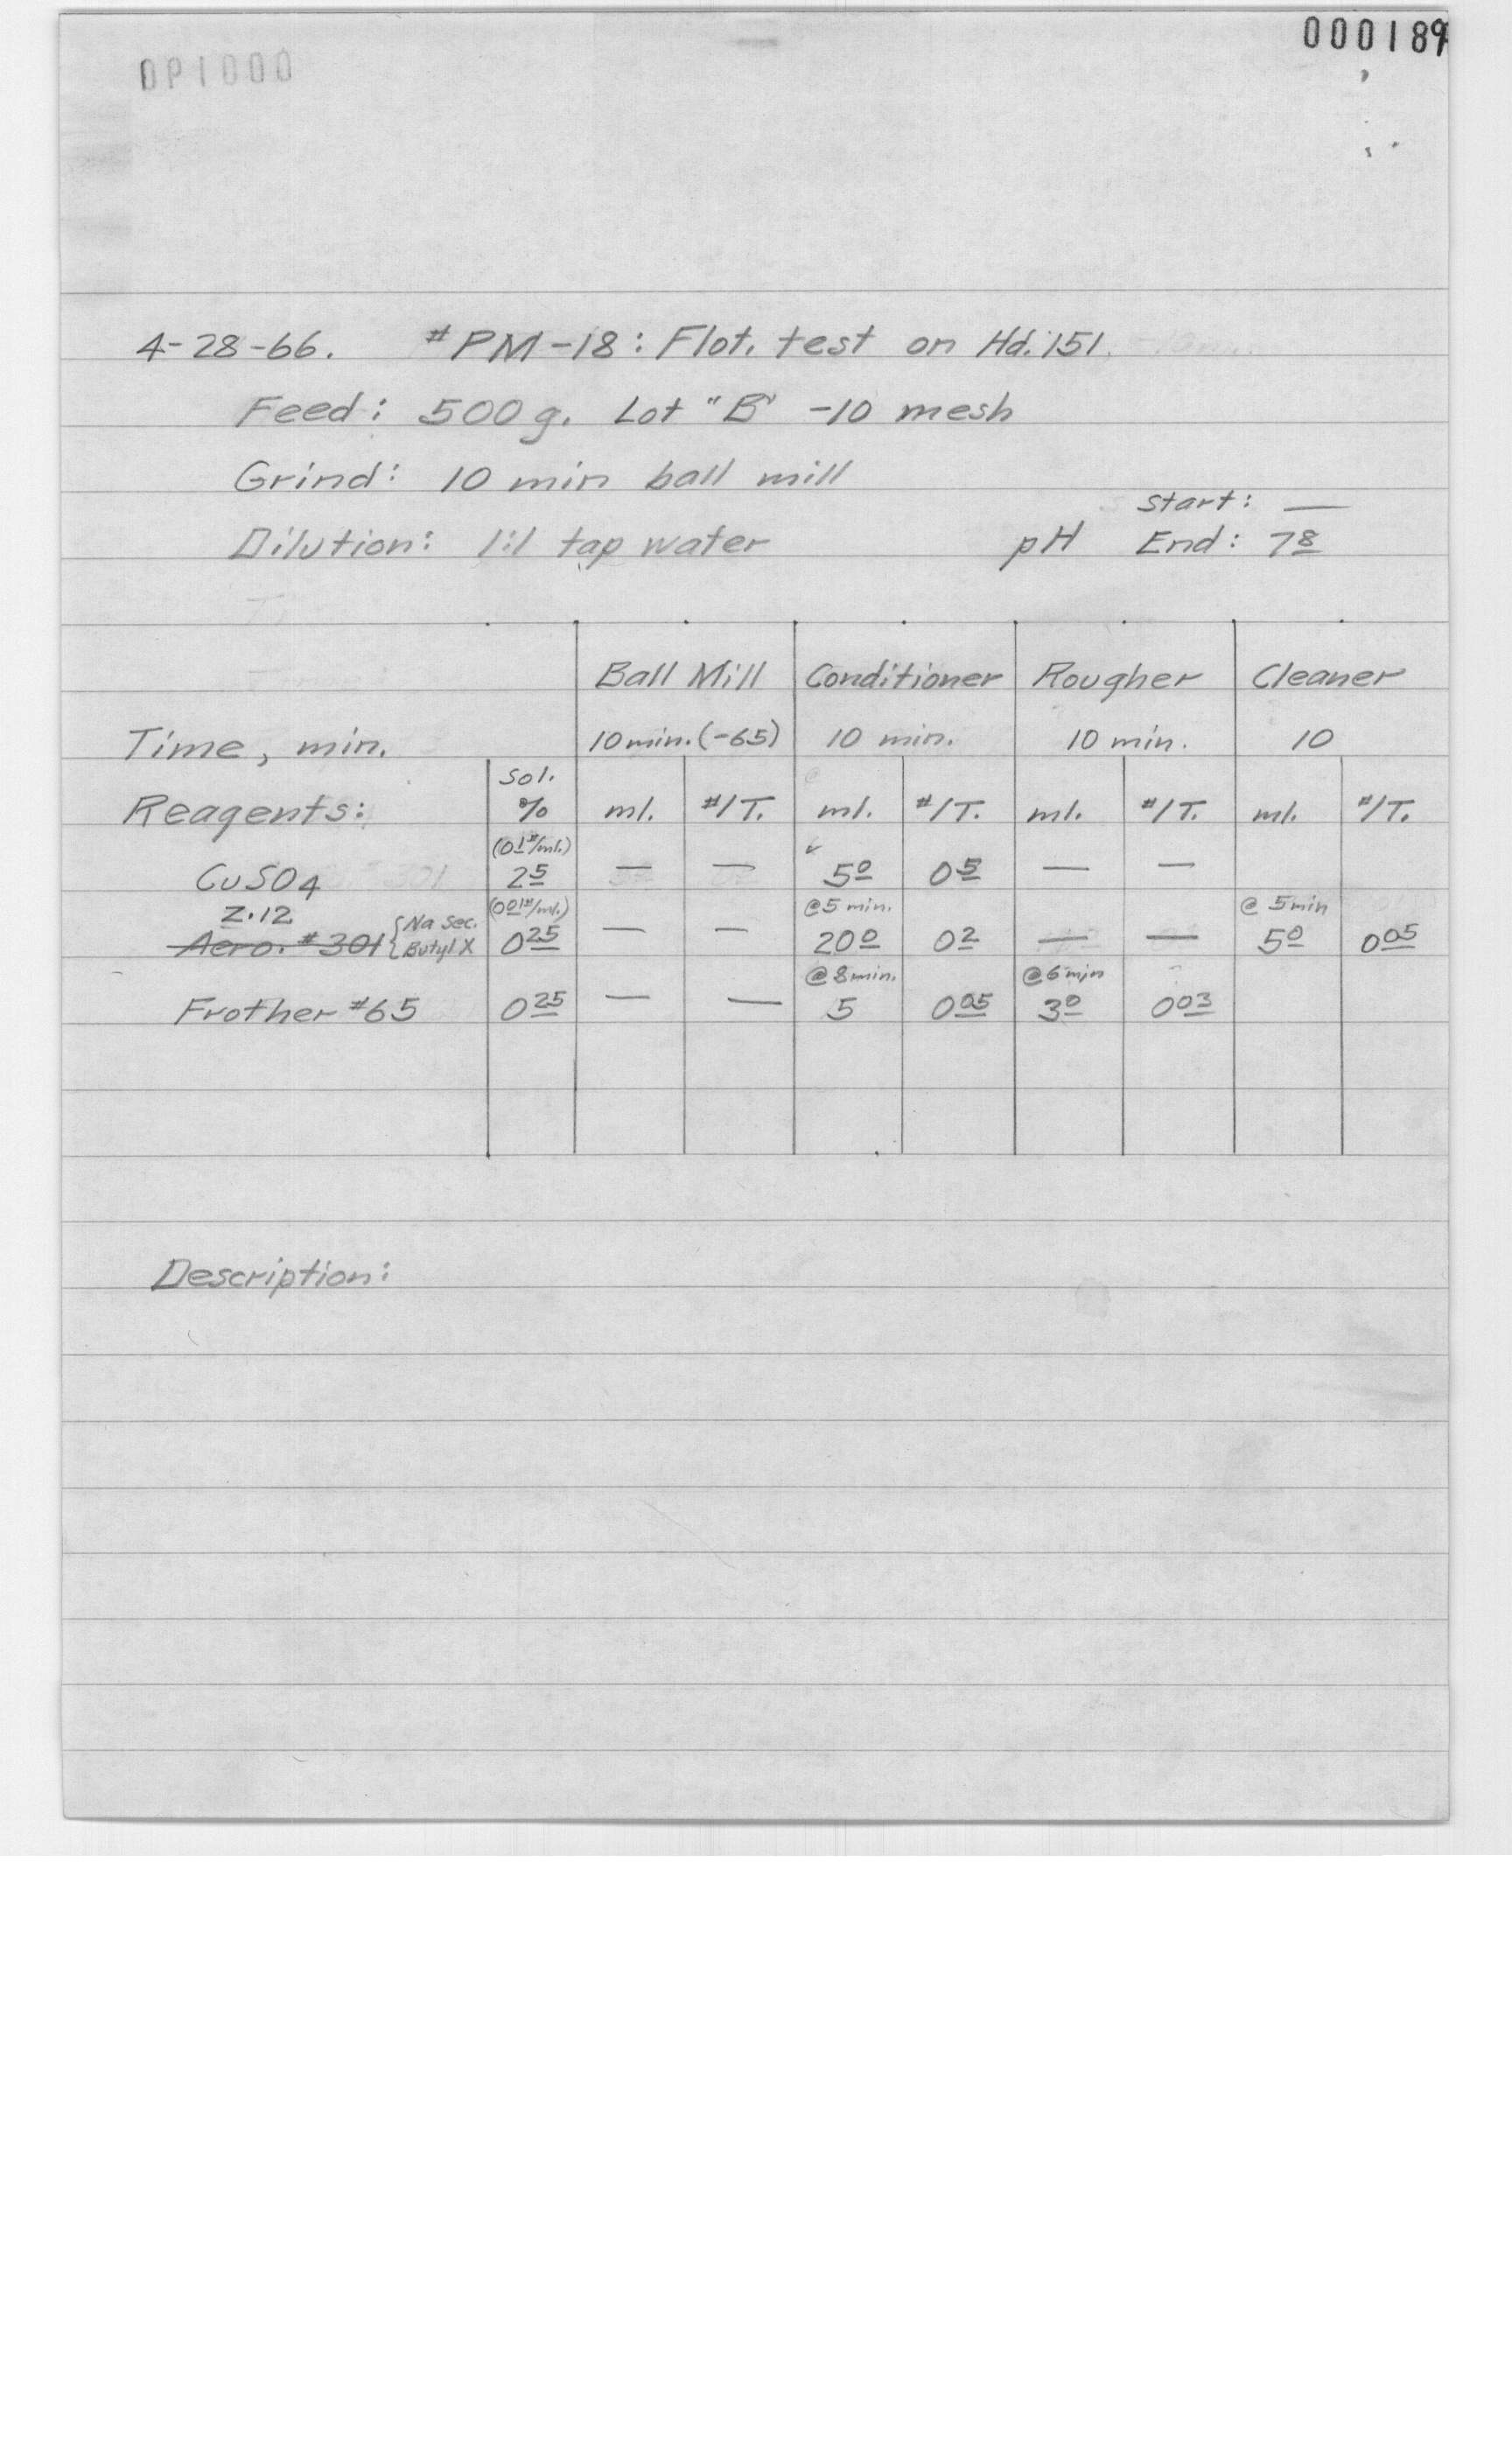 000189
OP1000
4-28-66. #PM-18: Flot. test on Hd. 151.
Feed: 500g. Lot "B" -10 mesh
Grind: 10 min ball mill
Start: —
Dilution: 1:1 tap water pH End: 7 8
Ball Mill Conditioner Rougher Cleaner
Time, min. 10 min. (-65) 10 min. 10 min. 10
Sol.
Reagents: % ml. #/T. ml. #/T. ml. #/T. ml. #/T.
(0 1#/ml.) ✓
CuSO4 2 5 — — 5 0 0 5 — —
Z-12 (0 01#/ml.) @5 min. @ 5min
Aero. #301 {Na Sec. Butyl X 0 25 — — 20 0 0 2 — — 5 0 0 05
@8 min. @6 min
Frother #65 0 25 — — 5 0 05 3 0 0 03
Description: